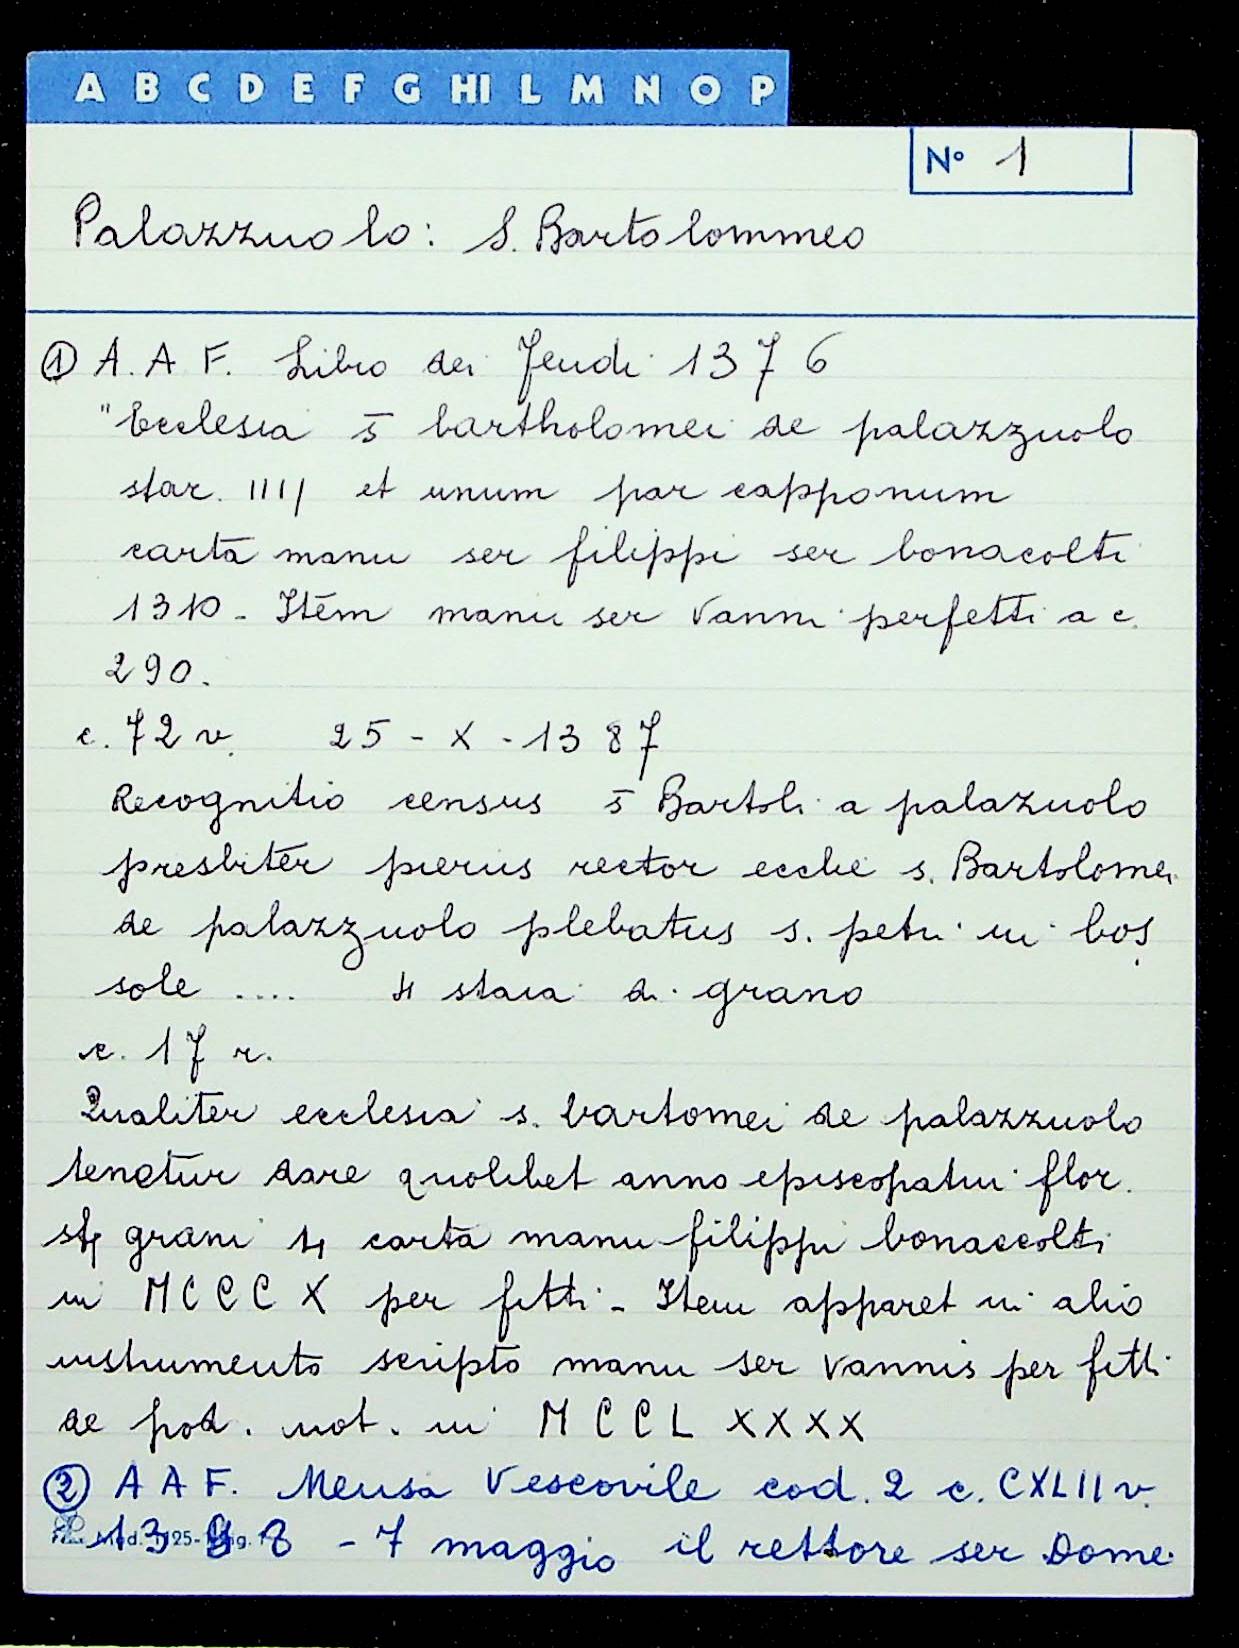 A B C D E F G HI L M N O P
N° 1
Palazzuolo: S. Bartolommeo
① A. A F. Libro dei Feudi 1376
"Ecclesia s̄ bartholomei de palazzuolo
star. IIII et unum par capponum
carta manu ser filippi ser bonacolti
1310 - Item manu ser Vanni perfetti a c.
290.
c. 72 v. 25 - X - 1387
Recognitio census s̄ Bartoli a palazuolo
presbiter pierus rector ecche s. Bartolomei
de palazzuolo plebatus s. petri in bos
sole .... 4 staia di grano
c. 17 r.
Qualiter ecclesia s. bartomei de palazzuolo
tenetur dare quolibet anno episcopatui flor.
grani 4 carta manu filippi bonaccolti
in MCCCX per fetti - Item apparet in alio
instrumento scripto manu ser Vannis per fetti
de pod. not. in MCCLXXXX
② A A F. Mensa Vescovile cod. 2 c. CXLII v.
- 7 maggio il rettore ser Dome